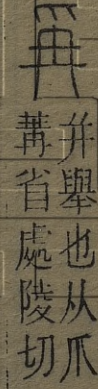 爯
并舉也从爪
冓省處陵切